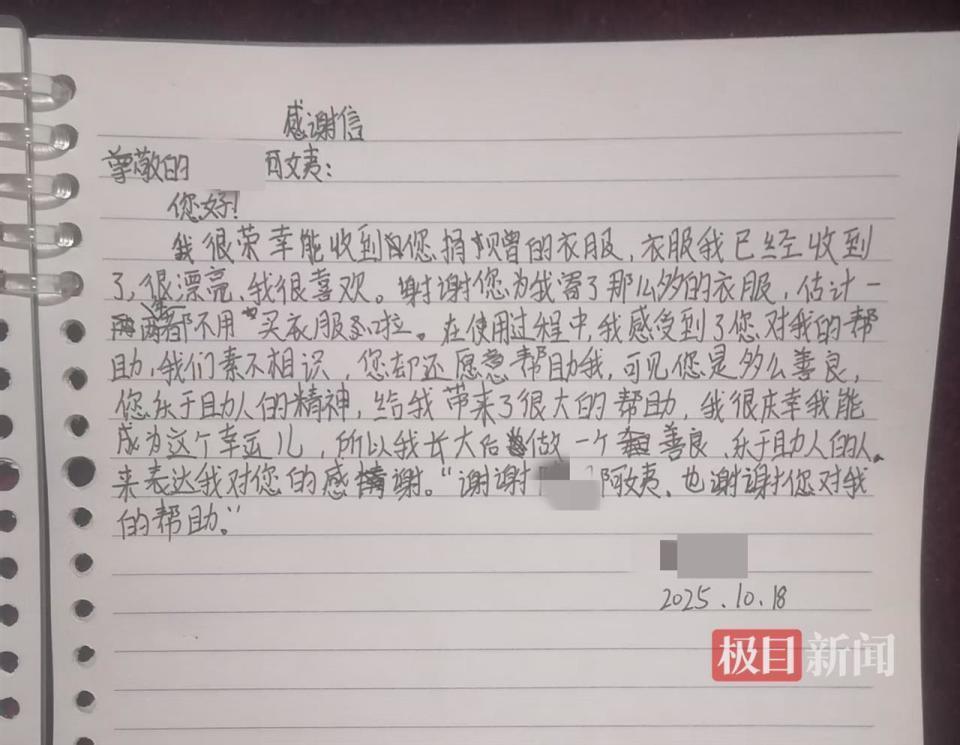 感谢信
尊敬的 阿姨：
您好！
我很荣幸能收到由您捐赠的衣服，衣服我已经收到
了，很漂亮，我很喜欢。谢谢您为我寄了那么多的衣服，估计一
两年都不用买衣服啦。在使用过程中，我感受到了您对我的帮
助，我们素不相识，您却还愿意帮助我，可见您是多么善良，
您乐于助人的精神，给我带来了很大的帮助，我很庆幸我能
成为这个幸运儿，所以我长大后做一个善良、乐于助人的人，
来表达我对您的感谢。“谢谢 阿姨，也谢谢您对我
的帮助。”
2025.10.18
极目新闻